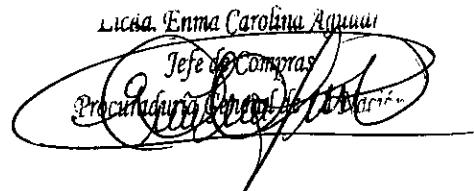 Licda. Enma Carolina Aguilar
Jefe de Compras
Procuraduría General de la Nación